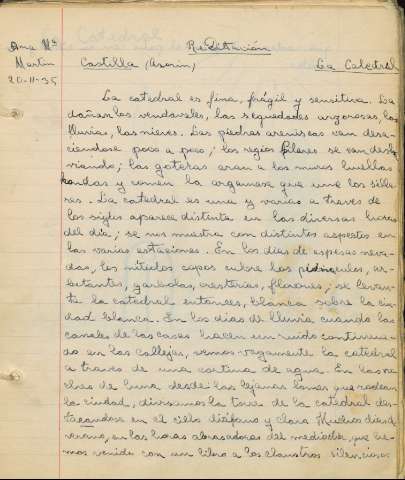 Ana Mª
Martín
20-11-35
Redacción
Castilla (Azorín)
La Catedral
La catedral es fina, frágil y sensitiva. La
dañan los vendavales, las sequedades ardorosas, las
lluvias, las nieves. Las piedras areniscas van desa-
ciendose poco a poco; los recios pilares se van desb
viando; las goteras aran en los muros huellas
hondas y comen la argamasa que une los silla-
res. La catedral es una y varia a traves de
los siglos aparece distinta en las diversas horas
del día; se nos muestra con distintos aspectos en
las varias estaciones. En los días de espesas neva-
das, los nitidos copos cubre los pináculos, ar-
botantes, gárbolas, cresterias, florones; se levan-
ta la catedral entonces, blanca sobre la ciu-
dad blanca. En los días de lluvia cuando las
canales de las casas hacen un ruido continua-
do en las callejas, vemos vagamente la catedral
a traves de una cortina de agua. En las no-
ches de luna desde las lejanas lomas que rodean
la ciudad, divisamos la torre de la catedral des-
tacandose en el cielo diáfano y claro Muchos dias de
verano, en las horas abrasadoras del mediodia, que he-
mos venido con un libro a los claustros silenciosos